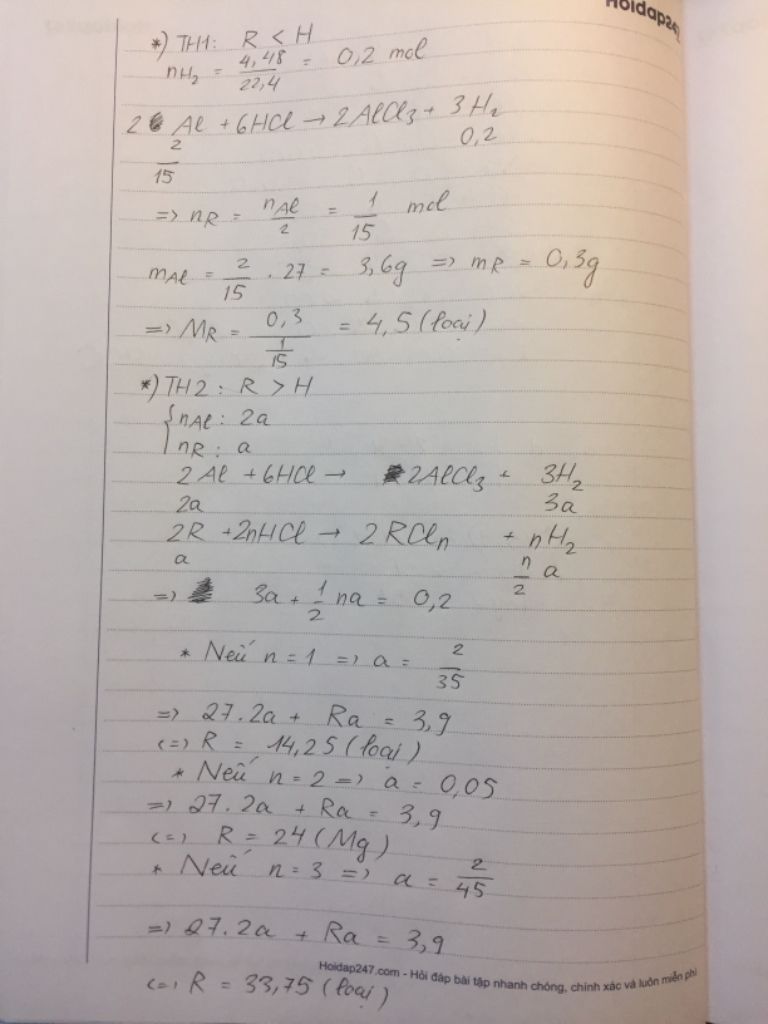 Hoidap247
*) TH1: R < H
nH2 = 4,48/22,4 = 0,2 mol
2 Al + 6HCl → 2AlCl3 + 3H2
2/15 0,2
=> nR = nAl/2 = 1/15 mol
mAl = 2/15 . 27 = 3,6g => mR = 0,3g
=> MR = 0,3/(1/15) = 4,5 (loại)
*) TH2: R > H
{ nAl: 2a
nR: a
2Al + 6HCl → 2AlCl3 + 3H2
2a 3a
2R + 2nHCl → 2RCln + nH2
a n/2 a
=> 3a + 1/2 na = 0,2
* Nếu n = 1 => a = 2/35
=> 27.2a + Ra = 3,9
<=> R = 14,25 (loại)
* Nếu n = 2 => a = 0,05
=> 27.2a + Ra = 3,9
<=> R = 24 (Mg)
* Nếu n = 3 => a = 2/45
=> 27.2a + Ra = 3,9
Hoidap247.com - Hỏi đáp bài tập nhanh chóng, chính xác và luôn miễn phí
<=> R = 33,75 (loại)